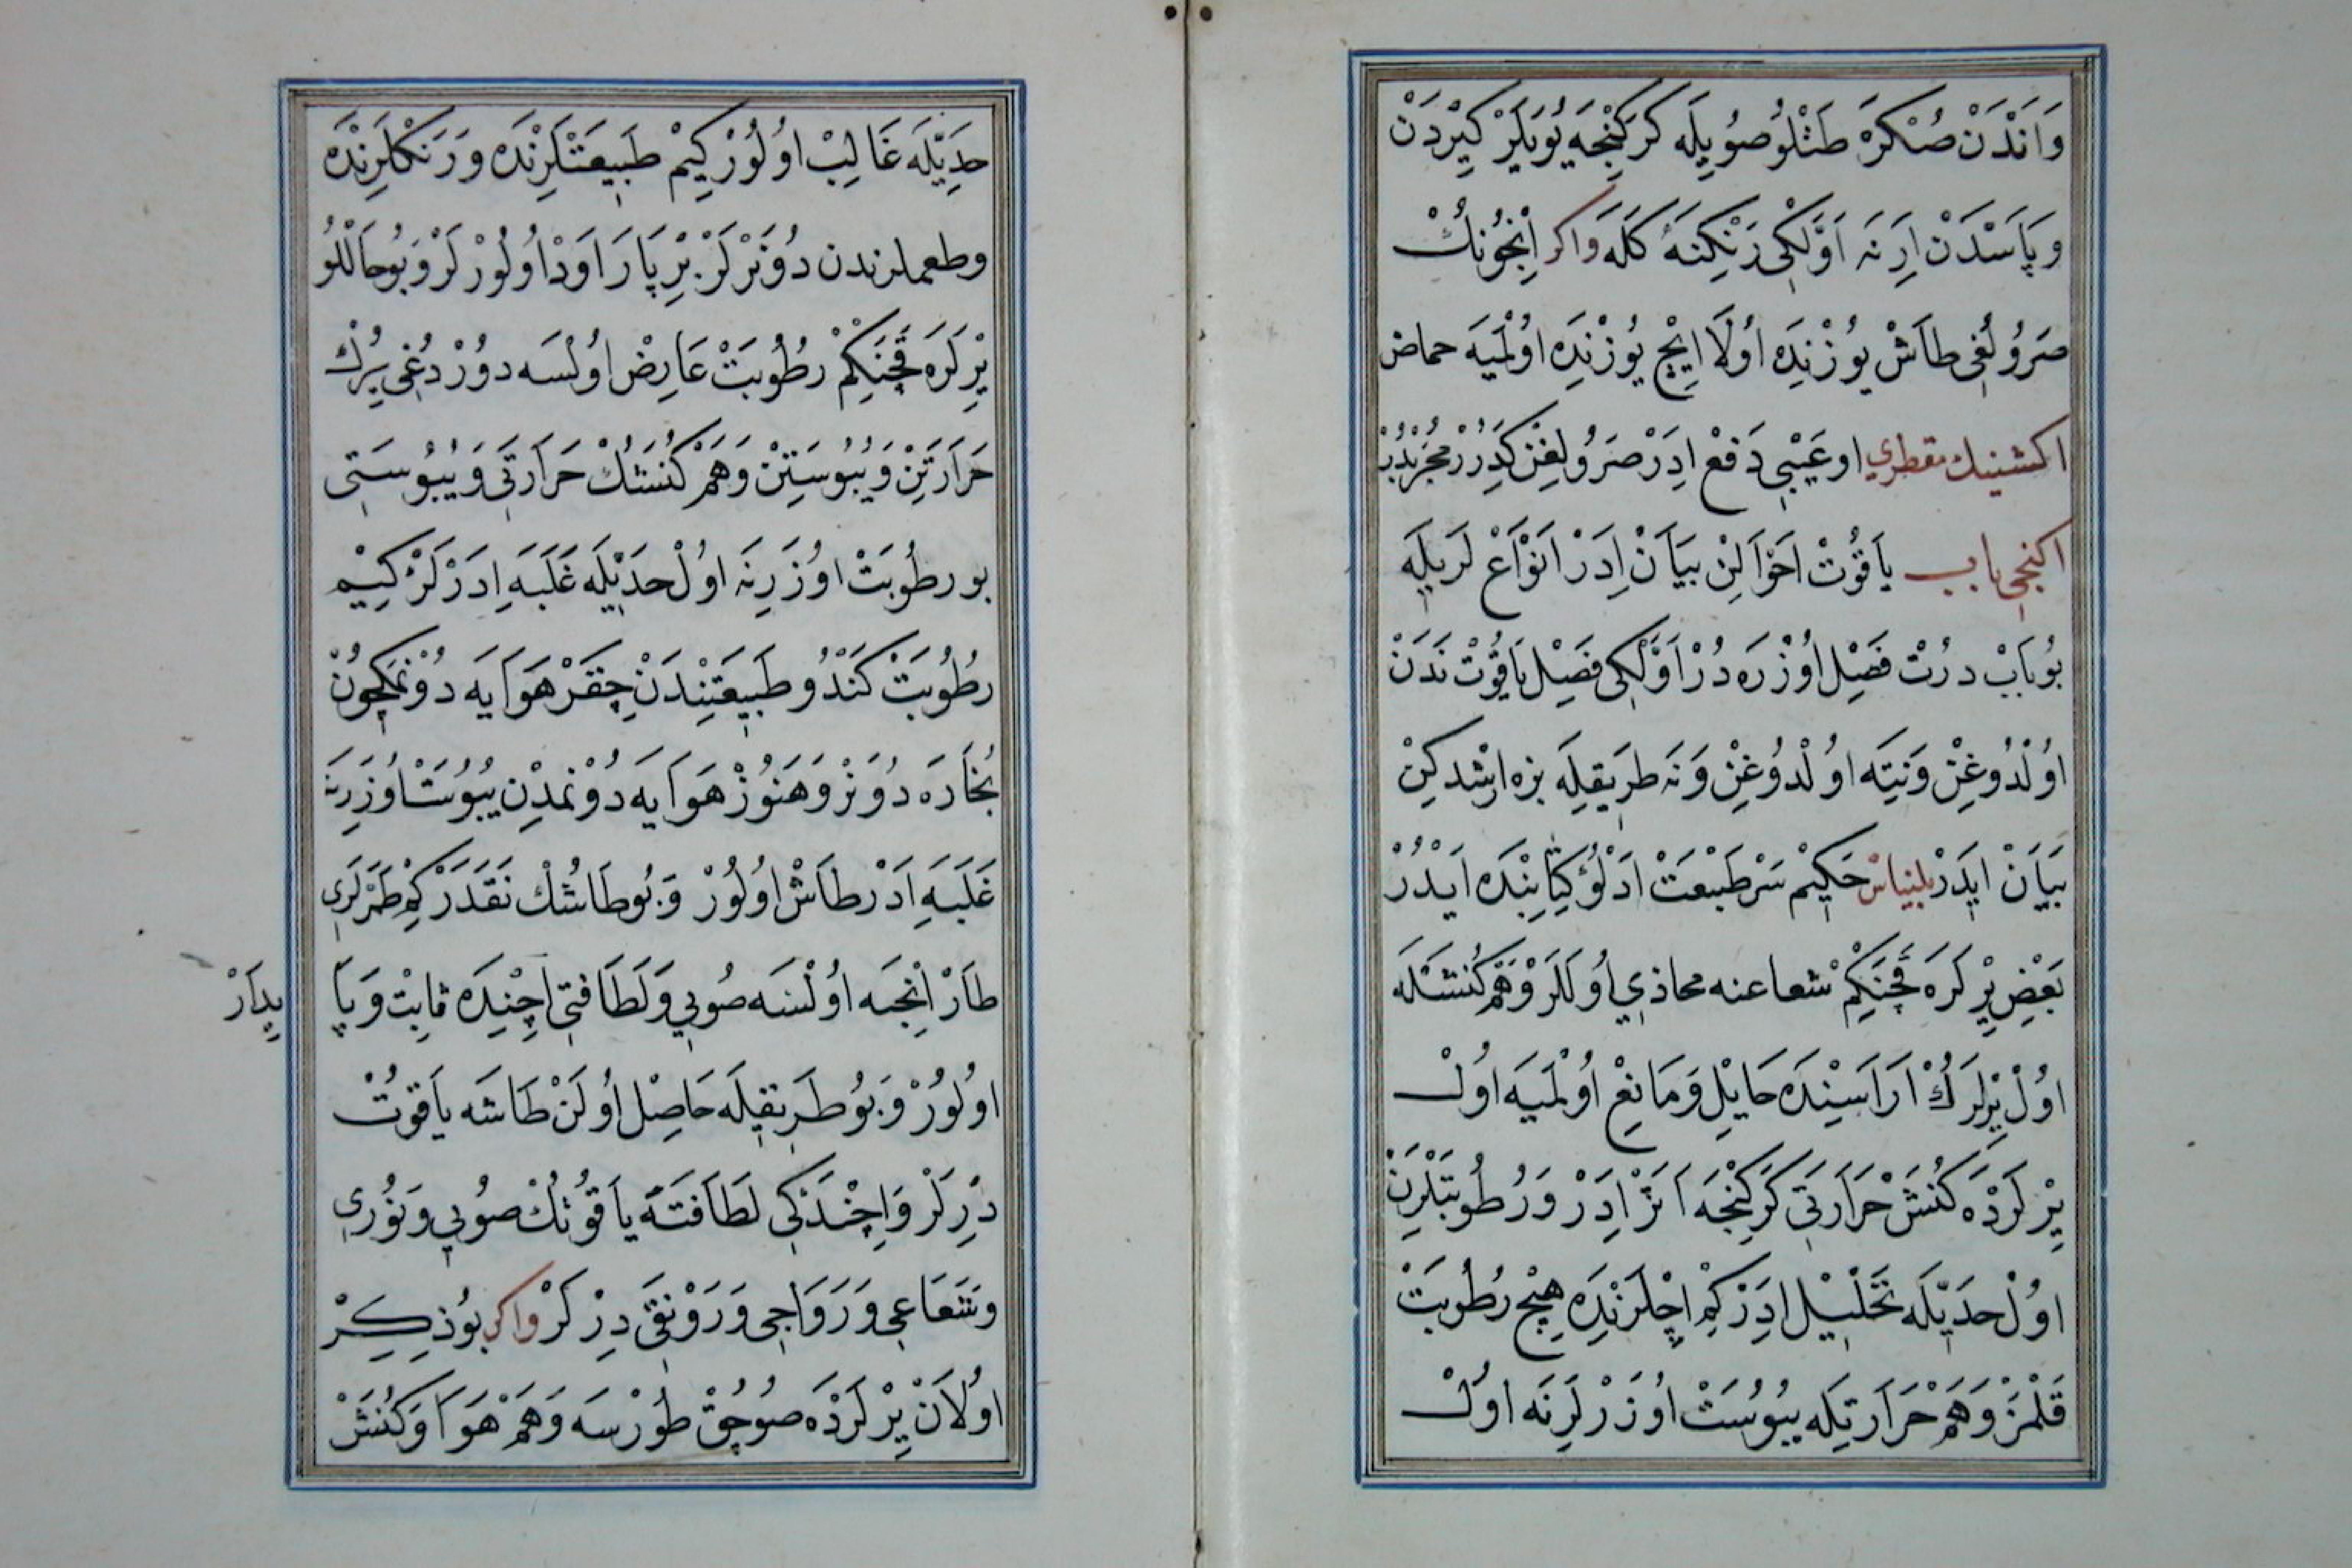 وَاَنْدَنْ صُكْرَهْ طَتْلُو صُويِلَه كَرَكِنْجَه يُويَلَرْ كِيرْدَنْ
وپَاسْدَنْ اَرِنَه اَوَّلْكِى رَنْكِنَه كَلَه وَاكر اِنْجُونُكْ
صَرُولُغِى طاَشْ يُوزُنْدَه اُولَا اِيچْ يُوزُنْدَه اوُلْمَيَه حماض
اكشينيك مقطرى او عَيْبِى دَفعْ اِدَرْ صَرُولِغِنْ كَدِرُرْ مُجَرَّبْدُرْ
اكنجى باب يَاقُوتْ اَحْوَالِنْ بيَانْ اِدَرْ اَنْوَاعْ لَرِيلَه
بُوبَابْ دُرْتْ فَصِلْ اُوزْرَه دُرْ اَوَّلْكِى فَصِلْ يَاقُوتْ نَدَنْ
اوُلْدُوغِنْ وَنِيتَه اوُلْدُوغِنْ وَنَه طَرِيقِلَه بزه ارشدكِنْ
بيَانْ ايدَرْ بلنياسْ حَكِيمْ سَرْ طَبِيعَتْ ادَلُو كِتَابِنْدَه اَيْدُرْ
بَعْضِ يِرْلَرَه قَچَنكِمْ شعاعنه محاذي اُولَالَرْ وَهَمْ كُنَشْلَه
اوُلْ يِرْلَرُكْ اَرَاسِنْدَه حَايِلْ وَمَانِعْ اوُلْمَيَه اوُلْ
يِرْلَرْدَه كُنَشْ حَرَارَتِى كَرَكِنْجَه اَثَرْ اِدَرْ وَرُطُوبَتْلَرِنْ
اوُلْ حَدِيلَه تَحْلِيلْ اِدَرْكِمْ اِچْلَرِنْدَه هِيچْ رُطُوبَتْ
قَلْمَزْ وَهَمْ حَرَارَتِلَه يبُوسَتْ اوُزَرْلَرِنَه اوُلْ
حَدِيلَه غَالِبْ اوُلُورْكِيمْ طَبِيعَتْلَرِنْدَه وَرَنَكْلَرِنْدَه
وطعملرندن دُونَرْلَرْ بِرْپَارَا اَوْدْ اُولُورْلَرْ وَبُو حَاللُو
يِرْلَرَه قَچَنكِمْ رطُوبَتْ عَارِضْ اوُلْسَه دوُرْدُغى يِرُكْ
حَرَارَتِنْ وَيُبُوسَتِنْ وَهَمْ كُنَشُكْ حَرَارَتِى وَيُبُوسَتِى
بو رطُوبَتْ اوُزَرِنَه اوُلْ حَدِيلَه غَلَبَه اِدَرْلَرْ كِيم
رطُوبَتْ كَنْدُو طَبِيعَتِنْدَنْ چِقَرْ هَوَايَه دُونْمَكچُونْ
بُخَارَه دُونَرْ وَهَنُوزْ هَوَايَه دُونْمَدِنْ يبُوسَتْ اوُزَرِنَه
غَلَبَه اِدَرْ طاَشْ اوُلُورْ وَبُو طَاشُكْ نَقَدَرْكِمْ طَمَرْلَرِى
طَارْ اِنْجَه اوُلْسَه صُويى وَلَطَافَتِى اِچِنْدَه ثابِتْ وَپَا
يِدَارْ
اوُلُورْ وَبُو طَرِيقِلَه حَاصِلْ اُولَنْ طَاشَه يَاقوُتْ
دِرلَرْ وَاِچِنْدَكِى لَطَافَتَه يَاقُوتُكْ صُويى وَنوُرى
وشَعَاعِى وَرَوَاجِى وَرَوْنَقِى دِرْلَرْ واكر بُوذِكِرْ
اوُلاَنْ يِرْلَرْدَه صوُچُقْ طُورْسَه وَهَمْ هَوَا وَكُنَشْ